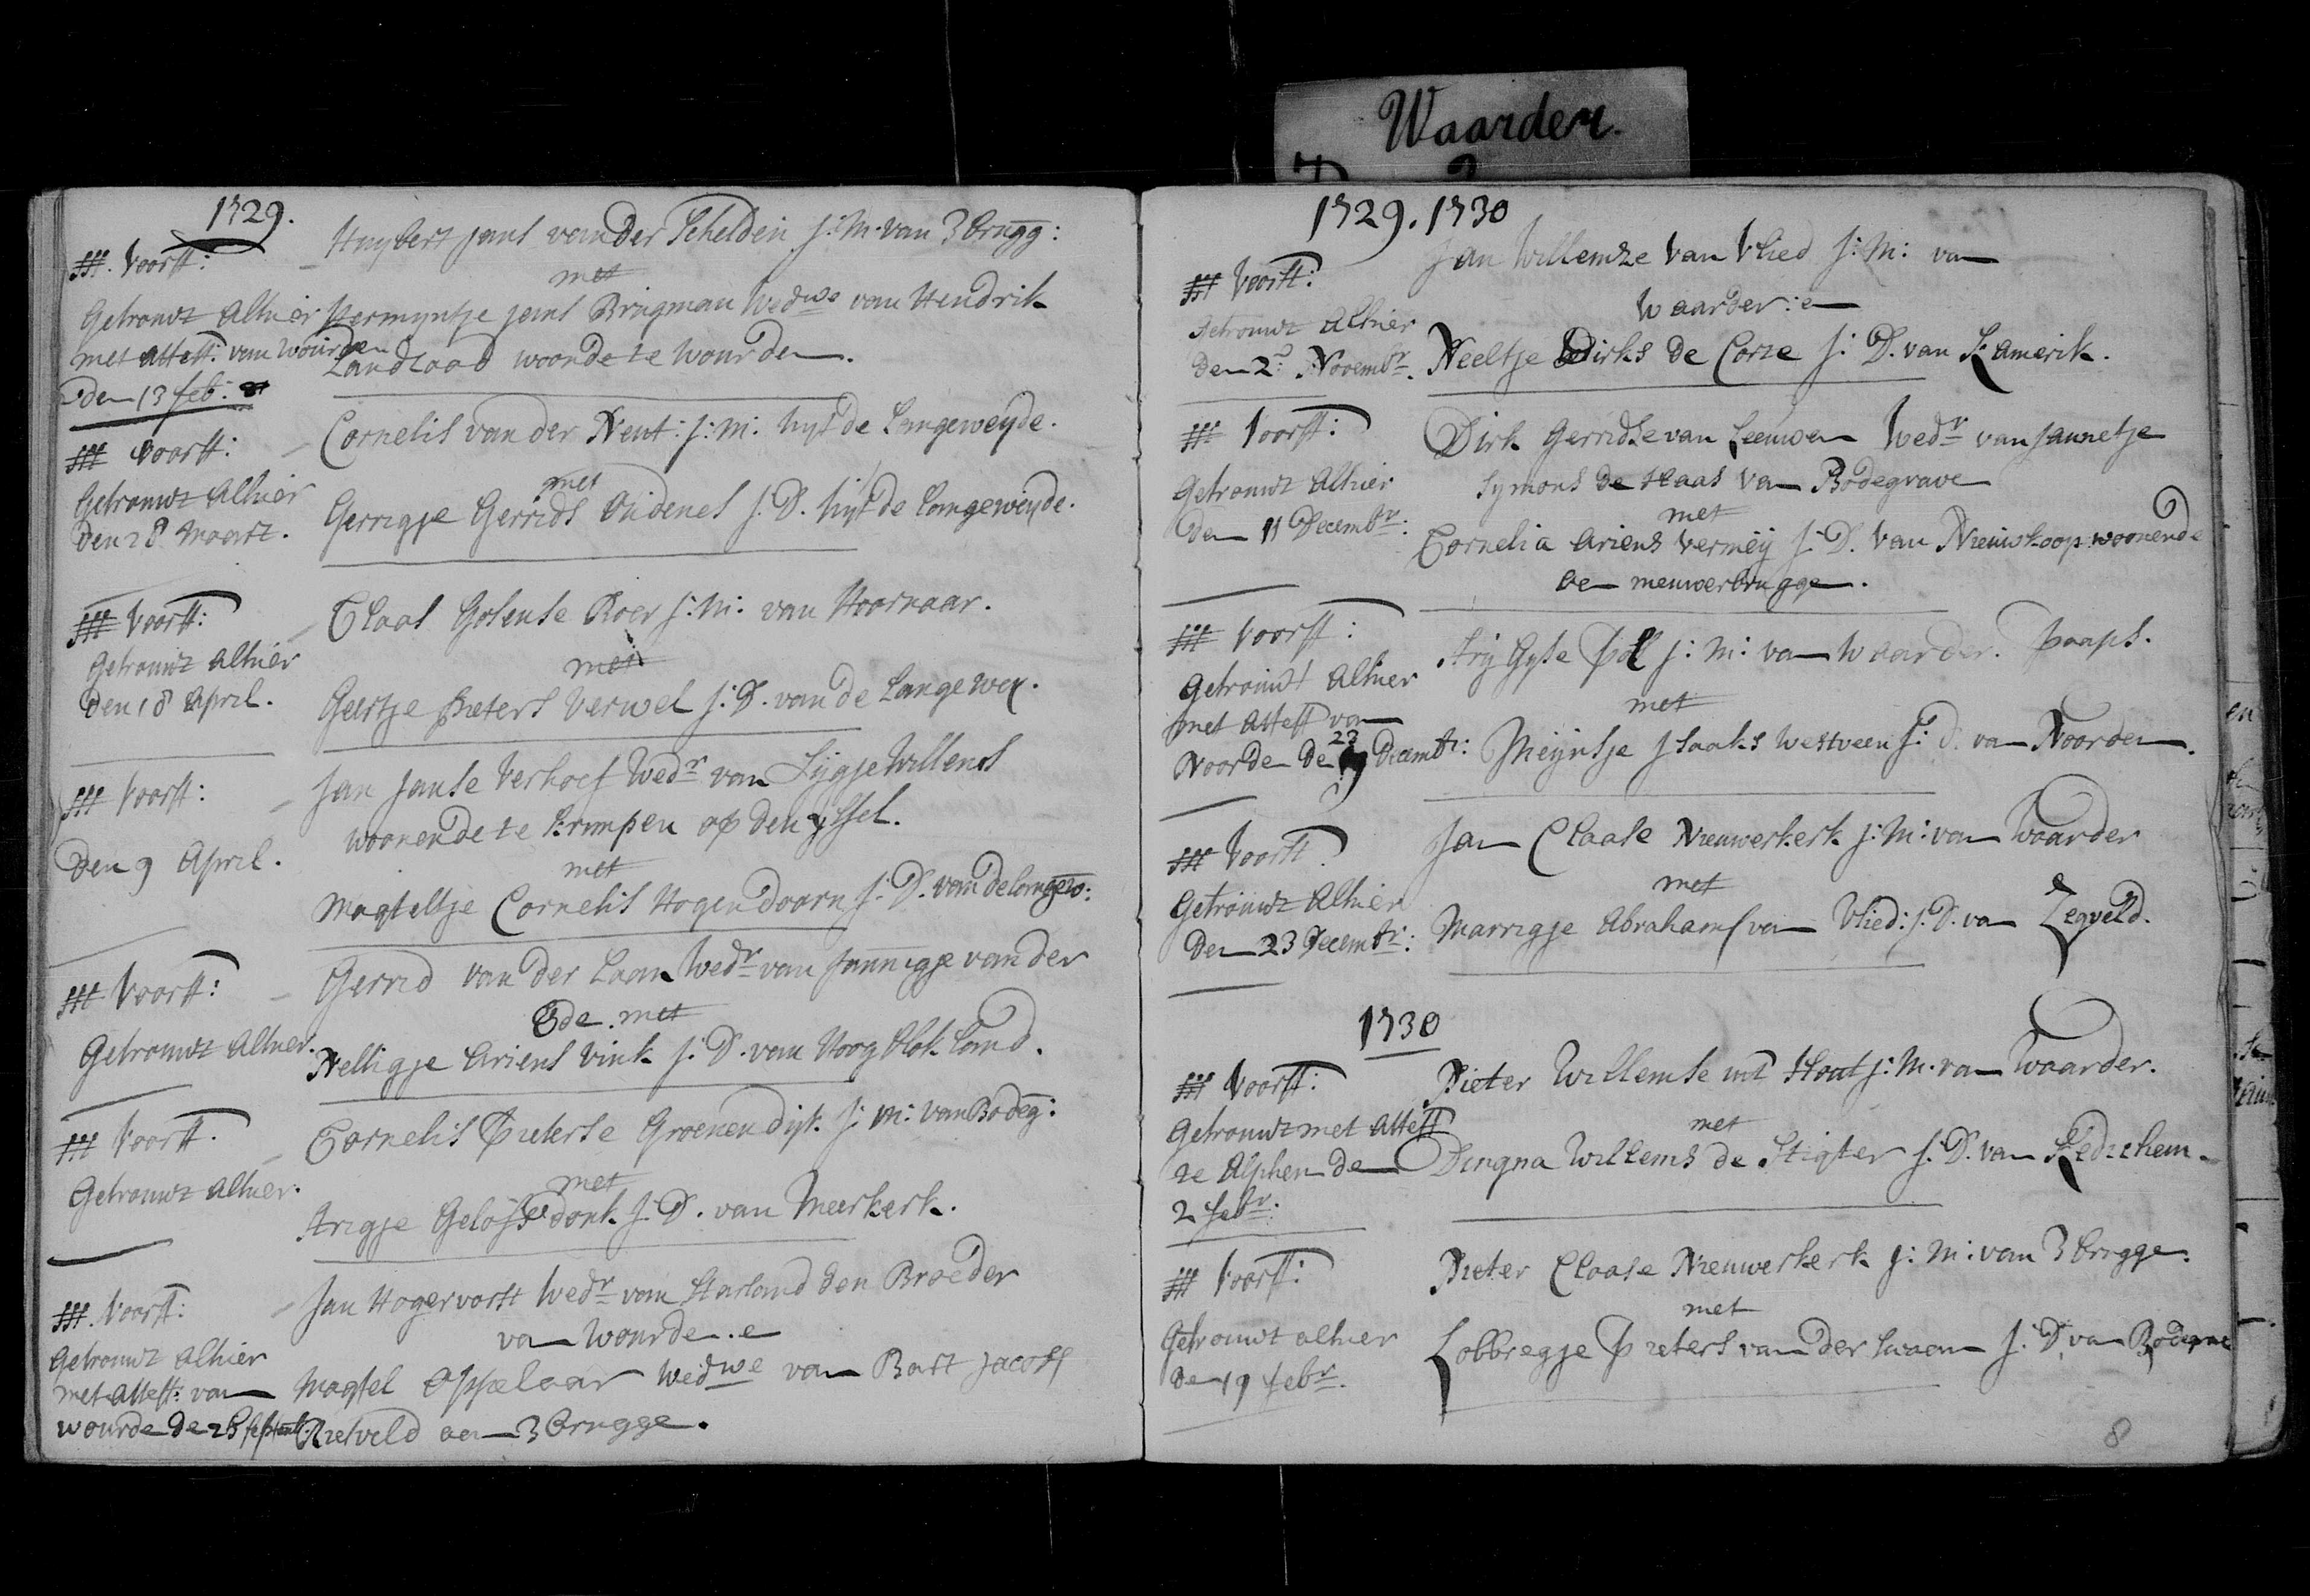 Waarder.
1729.
Voorst:
Getrouwt Alhier
met attest: van Wourden
den 13 feb:
Huybert Jans van der Schelden J:M. van 3 brugg:
met
Permyntje Jans Brugman Wedwe van Hendrik
Landzaad woonde te Wourden.
Voorst:
Getrouwt Alhier
den 28 Maart.
Cornelis van der Neut: J:M: uyt de Langeweyde.
met
Gerrigje Gerrids Oudenes J.D. uyt de Langeweyde.
Voorst:
Getrouwt Alhier
den 18 April.
Claas Gosense Boer J:M: van Hoornaar.
met
Geertje Pieters Verwel J:D. van de Langewey.
Voorst:
den 9 April.
Jan Janse Verhoef Wedr van Sijgje Willems
woonende te Krimpen op den yssel.
met
Magteltje Cornelis Hogendoorn J:D. van de langew:
Voorst:
Getrouwt Alhier.
Gerrid van der Laan Wedr van Jannigje van der
Ede. met
Nelligje Ariens Vink J:D. van Hoogblokland.
Voorst.
Getrouwt Alhier.
Cornelis Pieterse Groenendijk J:M: van Bodeg:
met
Arigje donk J:D. van Meerkerk.
Voorst:
Getrouwt Alhier
met attest: van
wourde de 25 septemb:
Jan Hogervorst Wedr van den Broeder
van Wourden. e
Magtel Appelaar Wedwe van Bart Jacobs
Rietveld aen 3 brugge.
1729. 1730
Voorst:
Getrouwt Alhier
den 2: Novembr.
Jan Willemze van Vlied J:M: van
Waarder: en
Neeltje Dirks de Corte J:D. van Kamerik.
Voorst:
Getrouwt Alhier
den 11 Decembr:
Dirk Gerridse van Leeuwen Wedr van Jannetje
Symons de Haas van Bodegrave
met
Cornelia Ariens Vermeij J:D. van Nieuwkoop woonende
aen nieuwerbrugge.
Voorst:
Getrouwt Alhier
met attest van
Noorden de 23 Decembr:
Arij Gyse Pol J:M: van Waarder. Paaps.
met
Meijnsje Isaaks Westveen J:D. van Noorden.
Voorst:
Getrouwt Alhier
den 23 Decembr:
Jan Claase Nieuwerkerk J:M: van Waarder
met
Marrigje Abrahams van Vlied: J:D. van Zegveld.
1730
Voorst:
Getrouwt met Attest
te Alphen den
2 febr.
Pieter Willemse uit Hout J:M. van Waarder.
met
Dingna Willems de Stigter J:D. van Kedichem.
Voorst:
Getrouwt alhier
den 19 febr.
Pieter Claase Nieuwerkerk J:M: van 3 brugge.
met
Lobbregje Pieters van der J:D. van Bodegrave
8